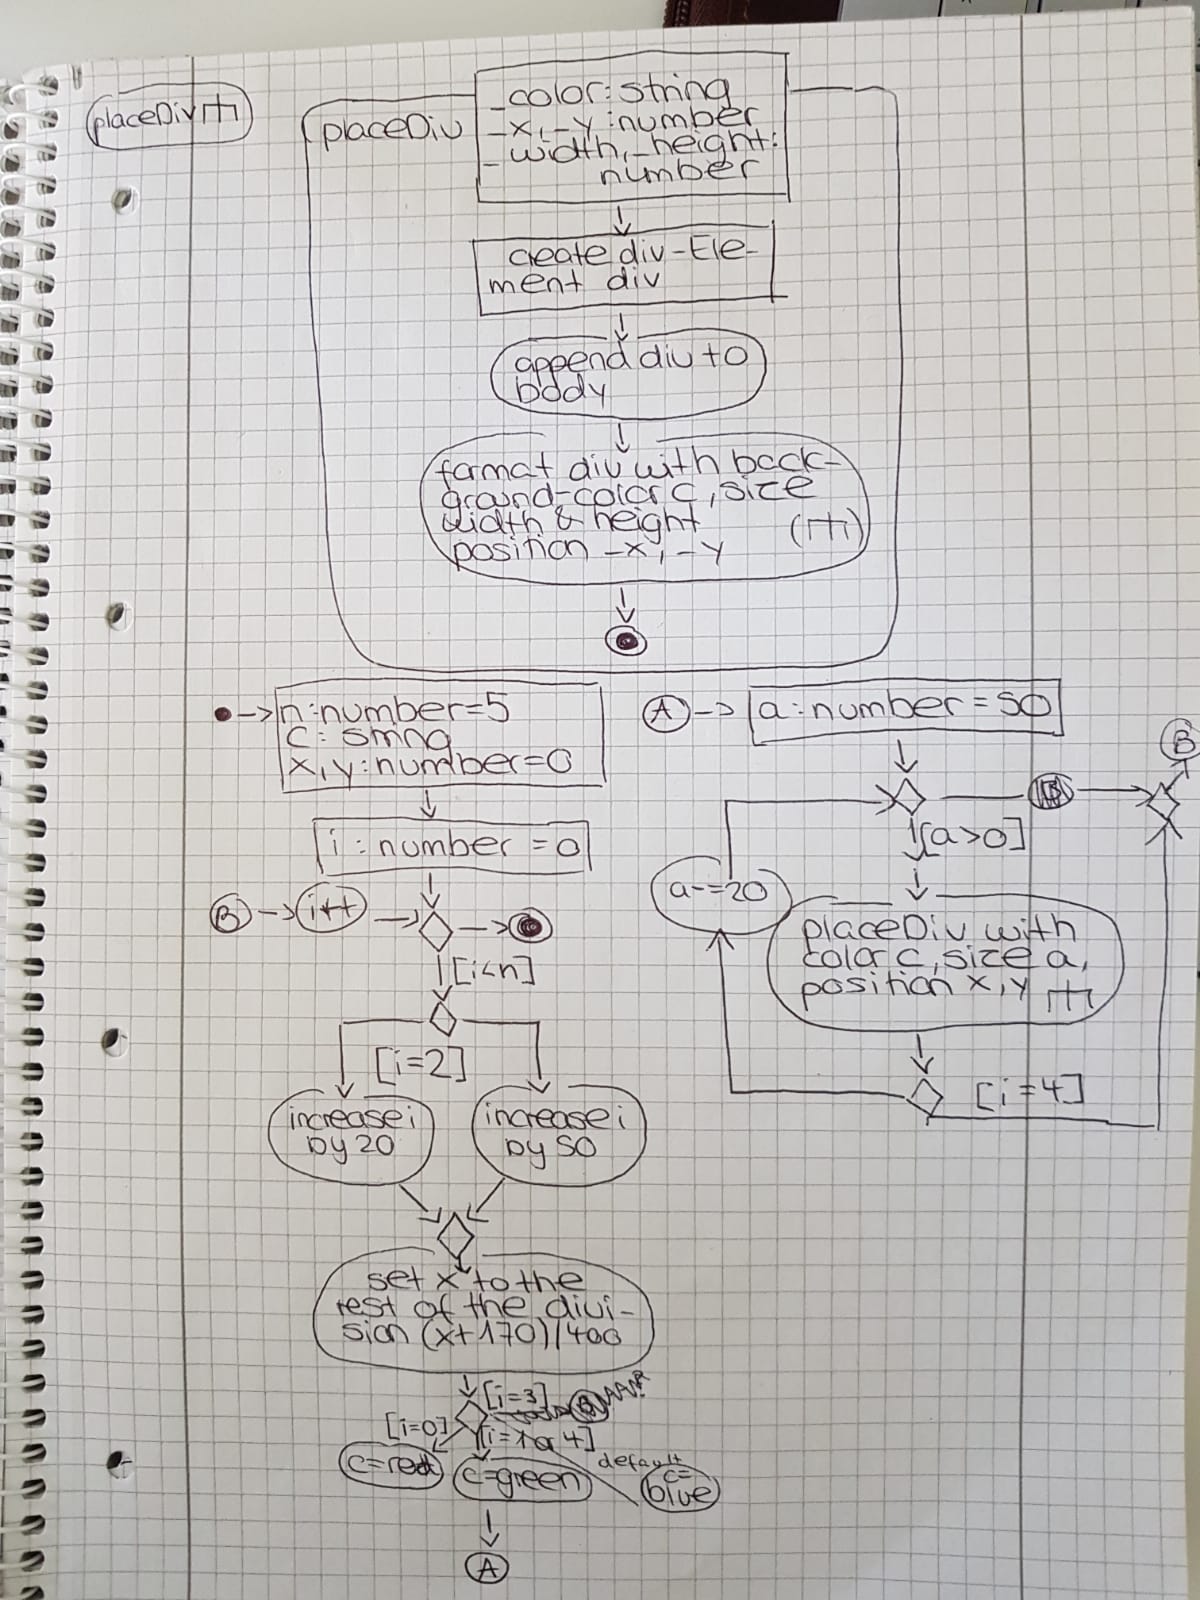 placeDiv
placeDiv
_color: string
_x, _y: number
_width, _height:
number
create div-Ele-
ment div
append div to
body
format div with back-
ground-color c, size
width & height
position _x, _y
n: number=5
c: string
x, y: number=0
i: number = 0
B
i++
[i<n]
[i=2]
increase i
by 20
increase i
by 50
set x to the
rest of the divi-
sion (x+170)/400
[i=3]
[i=0]
[i=1 or 4]
default
c=red
c=green
c=
blue
A
A
a: number = 50
B
[a>0]
a-=20
placeDiv with
color c, size a,
position x, y
[i=4]